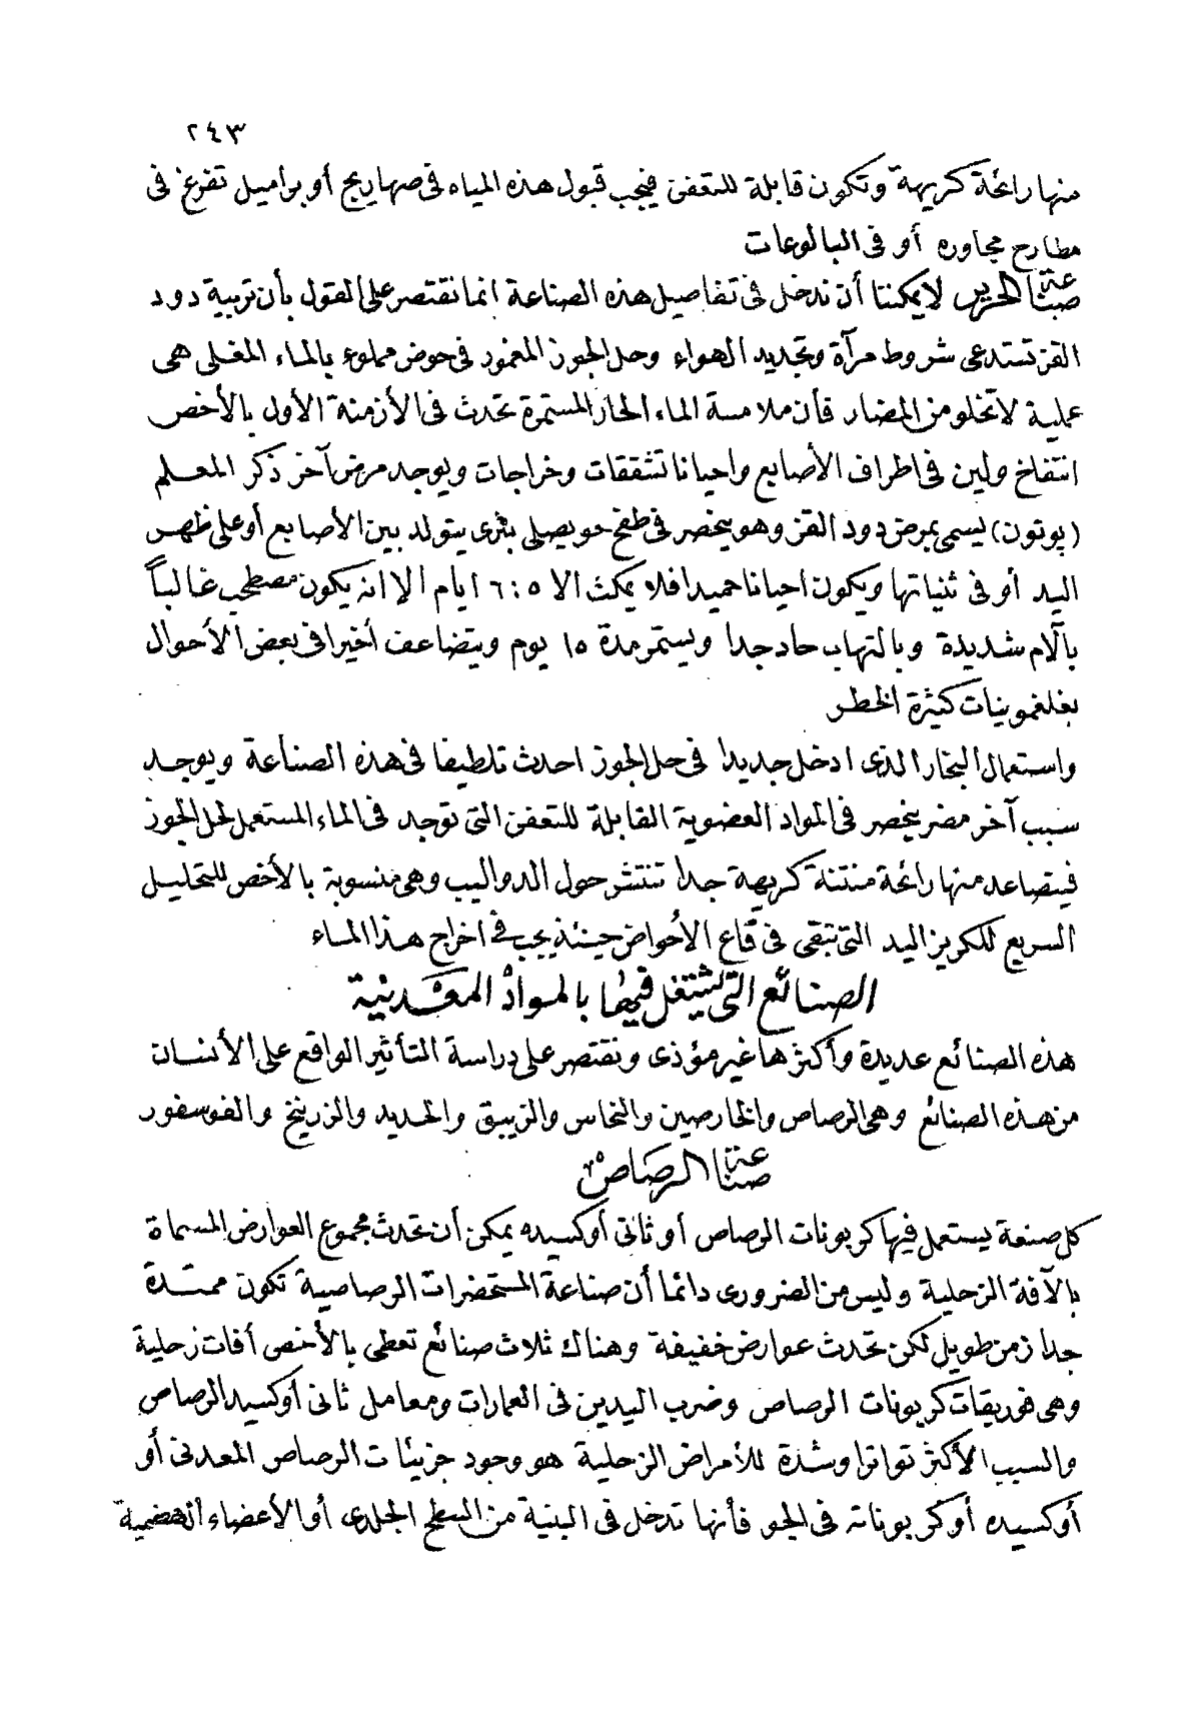 ٢٤٣
منها رائحة كريهة وتكون قابلة للتعفن فيجب قبول هذه المياه فى صهاريج أو براميل تفرغ فى
مطارح مجاوره أو فى البالوعات
صناعة الحرير لا يمكننا أن ندخل فى تفاصيل هذه الصناعة انما نقتصر على القول بأن تربية دود
القز تستدعى شروط مرآة وتجديد الهواء وحل الجوز المغمور فى حوض مملوء بالماء المغلى هى
عملية لا تخلو من المضار فأن ملامسة الماء الحار المستمرة تحدث فى الأزمنة الأول بالأخص
انتفاخ ولين فى اطراف الأصابع واحيانا تشققات وخراجات ويوجد مرض آخر ذكر المعلم
(پوتون) يسمى بمرض دود القز وهو ينحصر فى طفح حويصلى بثرى يتولد بين الأصابع أو على ظهر
اليد أو فى ثنياتها ويكون احيانا حميدا فلا يمكث الا ٥ : ٦ ايام الا انه يكون مصطحب غالباً
بآلام شديدة وبالتهاب حاد جدا ويستمر مدة ١٥ يوم ويتضاعف أخيرا فى بعض الأحوال
بفلغمونيات كثيرة الخطر
واستعمال البخار الذى ادخل جديدا فى حل الجوز احدث تلطيفا فى هذه الصناعة ويوجد
سبب آخر مضر ينحصر فى المواد العضوية القابلة للتعفن التى توجد فى الماء المستعمل لحل الجوز
فيتصاعد منها رائحة منتنة كريهة جدا تنتشر حول الدواليب وهى منسوبة بالأخص للتحليل
السريع للكريزاليد التى تبقى فى قاع الأحواض حينئذ يجب فى اخراج هذا الماء
الصنائع التى يشتغل فيها بالمواد المعدنية
هذه الصنائع عديدة وأكثرها غير مؤذى ونقتصر على دراسة التأثير الواقع على الأنسان
من هذه الصنائع وهى الرصاص والخارصين والنحاس والزيبق والحديد والزرينخ والفوسفور
صناعة الرصاص
كل صنعة يستعمل فيها كربونات الرصاص أو ثانى أوكسيده يمكن أن تحدث مجموع العوارض المسماة
بالآفة الزحلية وليس من الضرورى دائما أن صناعة المستحضرات الرصاصية تكون ممتدة
جدا زمن طويل لكن تحدث عوارض خفيفة وهناك ثلاث صنائع تعطى بالأخص أفات زحلية
وهى فوريقات كربونات الرصاص وضرب اليدين فى العمارات ومعامل ثانى أوكسيد الرصاص
والسبب الأكثر تواترا وشدة للأمراض الزحلية هو وجود جزيئات الرصاص المعدنى أو
أوكسيده أو كربوناته فى الجو فأنها تدخل فى البنية من السطح الجلدى أو الأعضاء الهضمية